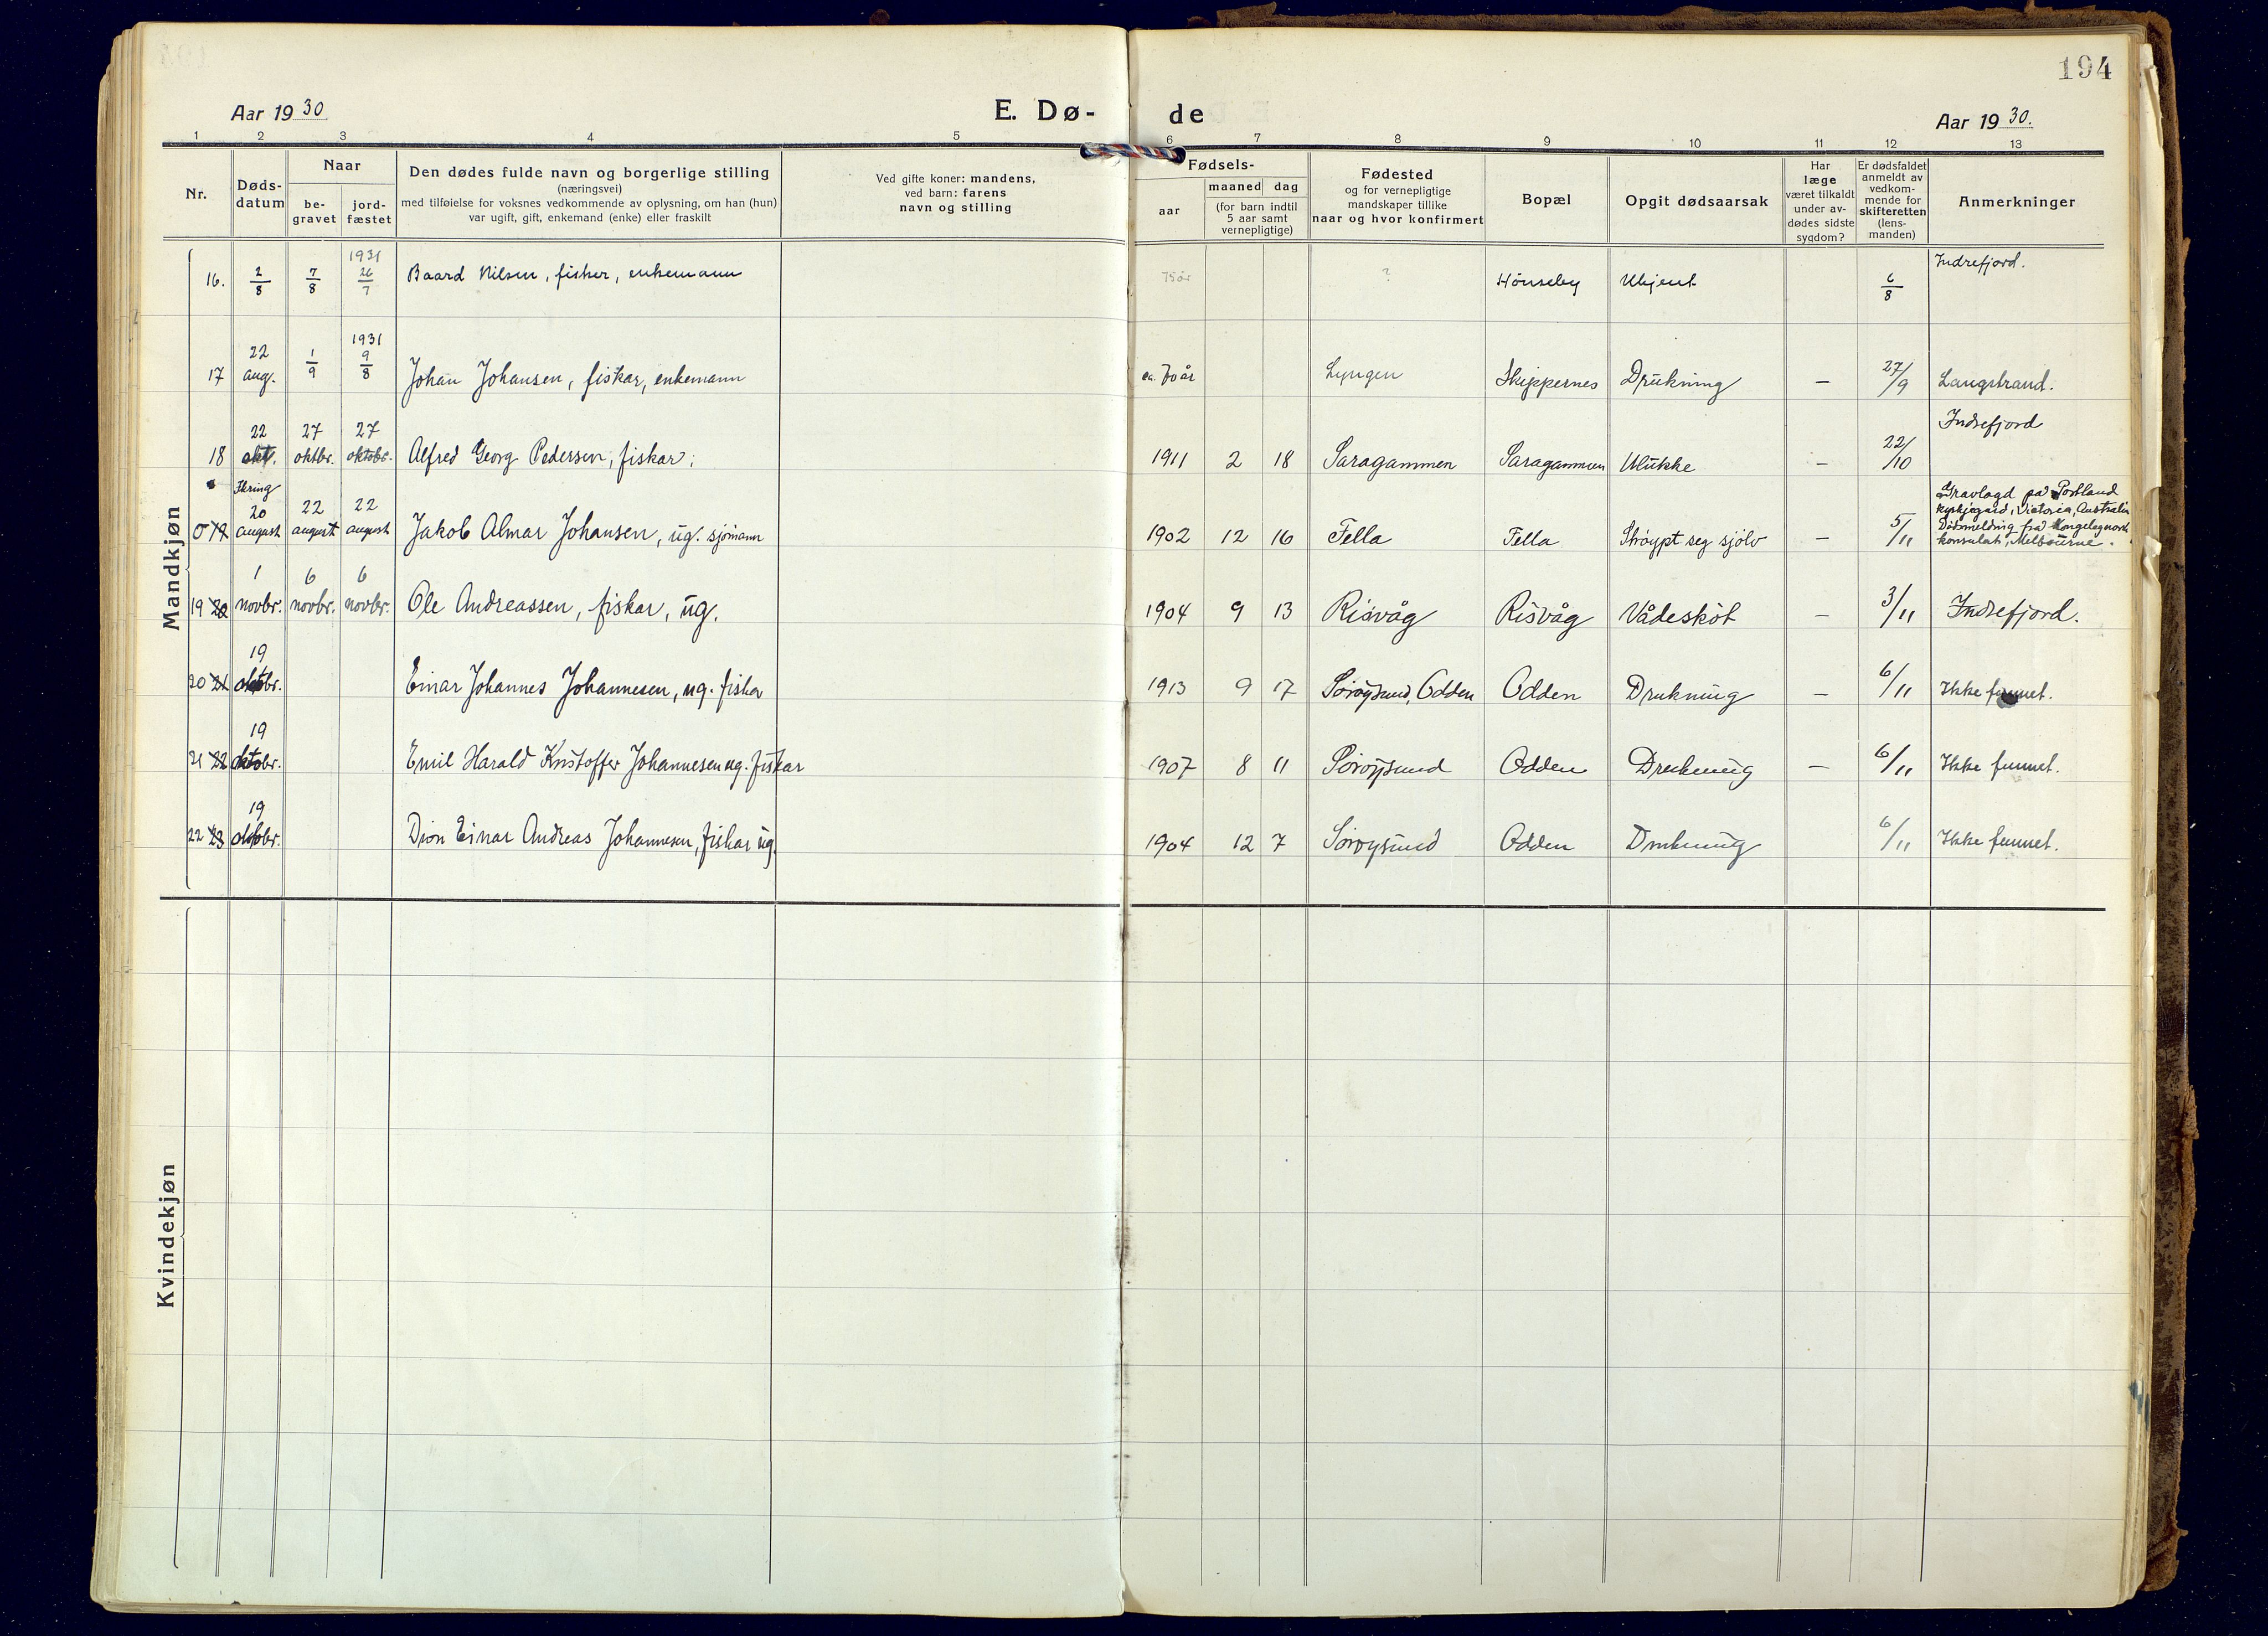 194
Aar 1930
E. Dø-
de
Aar 1930.
1 2 3 4 5 6 7 8 9 10 11 12 13
Nr.
Døds-
datum
Naar
be-
gravet
jord-
fæstet
Den dødes fulde navn og borgerlige stilling
(næringsvei)
med tilføielse for voksnes vedkommende av oplysning, om han (hun)
var ugift, gift, enkemand (enke) eller fraskilt
Ved gifte koner: mandens,
ved barn: farens
navn og stilling
Fødsels-
aar
maaned dag
(for barn indtil
5 aar samt
vernepligtige)
Fødested
og for vernepligtige
mandskaper tillike
naar og hvor konfirmert
Bopæl
Opgit dødsaarsak
Har
læge
været tilkaldt
under av-
dødes sidste
sygdom?
Er dødsfaldet
anmeldt av
vedkom-
mende for
skifteretten
(lens-
manden)
Anmerkninger
Mandkjøn
1931
16. 2/8 7/8 26/7 Baard Nilsen, fisker, enkemann 75 år ? Hönseby Ukjent 6/8 Indrefjord.
1931
17 22 aug. 1/9 9/8 Johan Johansen, fiskar, enkemann ca. 70 år Lyngen Skippernes Drukning – 27/9 Langstrand.
18 22 okt. 27 oktbr. 27 oktobr. Alfred Georg Pedersen, fiskar. 1911 2 18 Saragammen Saragammen Ulukke – 22/10 Indrefjord
Ikring
0 20 august 22 august 22 august Jakob Almar Johansen, ug. sjömann 1902 12 16 Fella Fella Ströypt seg sjölv – 5/11 Gravlagd på Portland
kyrkjegard, Victoria, Australia
Dödsmelding frå Kongeleg norsk
konsulat, Melbourne.
19 20 1 novbr. 6 novbr. 6 novbr. Ole Andreassen, fiskar, ug. 1904 9 13 Risvåg Risvåg Vådeskòt – 3/11 Indrefjord.
20 21 19 oktobr. Einar Johannes Johannesen, ug. fiskar 1913 9 17 Söröysund, Odden Odden Drukning – 6/11 Ikke funnet.
21 22 19 oktobr. Emil Harald Kristoffer Johannesen ug. fiskar 1907 8 11 Söröysund Odden Drukning – 6/11 Ikke funnet.
22 23 19 oktobr. Dion Einar Andreas Johannesen, fiskar ug. 1904 12 7 Söröysund Odden Drukning 6/11 Ikke funnet.
Kvindekjøn